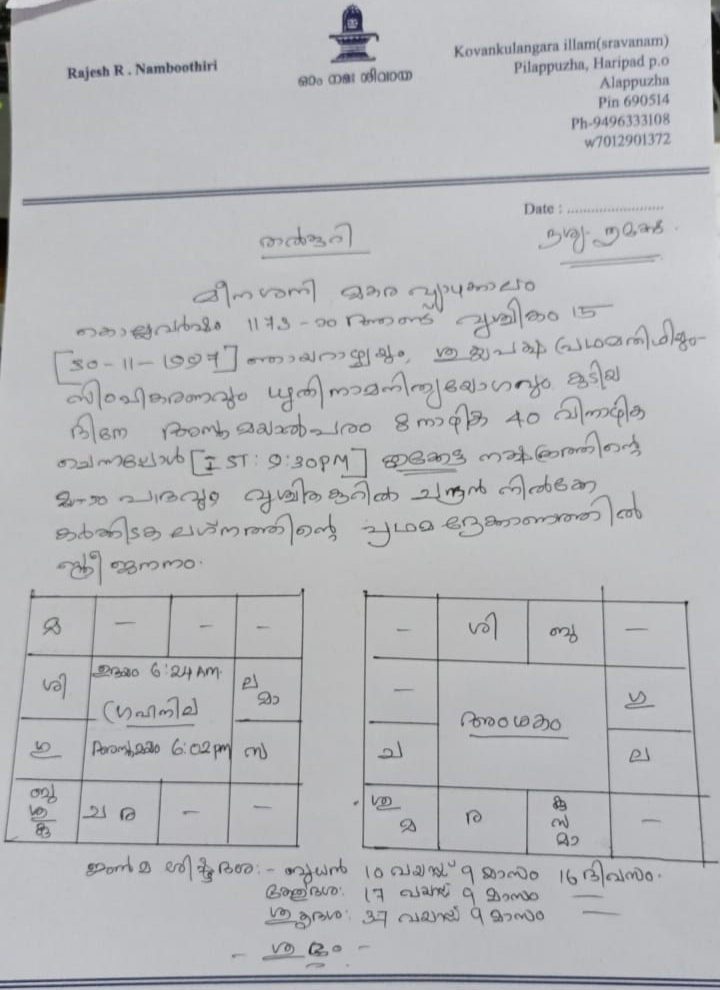 Rajesh R . Namboothiri
ഓം നമഃ ശിവായ
Kovankulangara illam(sravanam)
Pilappuzha, Haripad p.o
Alappuzha
Pin 690514
Ph-9496333108
w7012901372
Date : ........................
തൽക്കുറി
മീനശനി മകര വ്യാഴകാലം
കൊല്ലവർഷം 1173-ാo ആണ്ട് വൃശ്ചികം 15
[30-11-1997] ഞായറാഴ്ചയും, ശുക്ലപക്ഷ പ്രഥമതിഥിയും
സിംഹകരണവും ധൃതിനാമനിത്യയോഗവും കൂടിയ
ദിനേ അസ്തമയാൽപരം 8 നാഴിക 40 വിനാഴിക
ചെന്നപ്പോൾ [IST: 9:30PM] തൃക്കേട്ട നക്ഷത്രത്തിന്റെ
പാദവും വൃശ്ചികകൂറിൽ ചന്ദ്രൻ നിൽക്കേ
കർക്കിടക ലഗ്നത്തിന്റെ പ്രഥമ ദ്രേക്കാണത്തിൽ
സ്ത്രീ ജനനം.
മ – – –
ശി ഉദയം 6:24AM. ല മാ
ഗ്രഹനില
ഗു അസ്തമയം 6:02pm സ
ബു ശു കു ച ര – –
– ശി ബു –
– ഗു
അംശകം
ച ല
ശു മ ര കു സ മാ –
ജന്മ ശിഷ്ടദശ:- ബുധൻ 10 വയസ്സ് 9 മാസം 16 ദിവസം.
കേതുദശ: 17 വയസ്സ് 9 മാസം —
ശുക്രദശ: 37 വയസ്സ് 9 മാസം —
- ശുഭം -